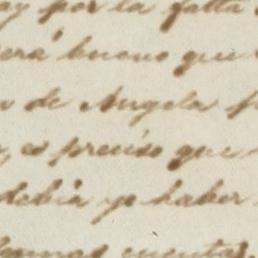 ay por la falta
será bueno que
de Angela
es preciso que
debia yo haber
cuentas